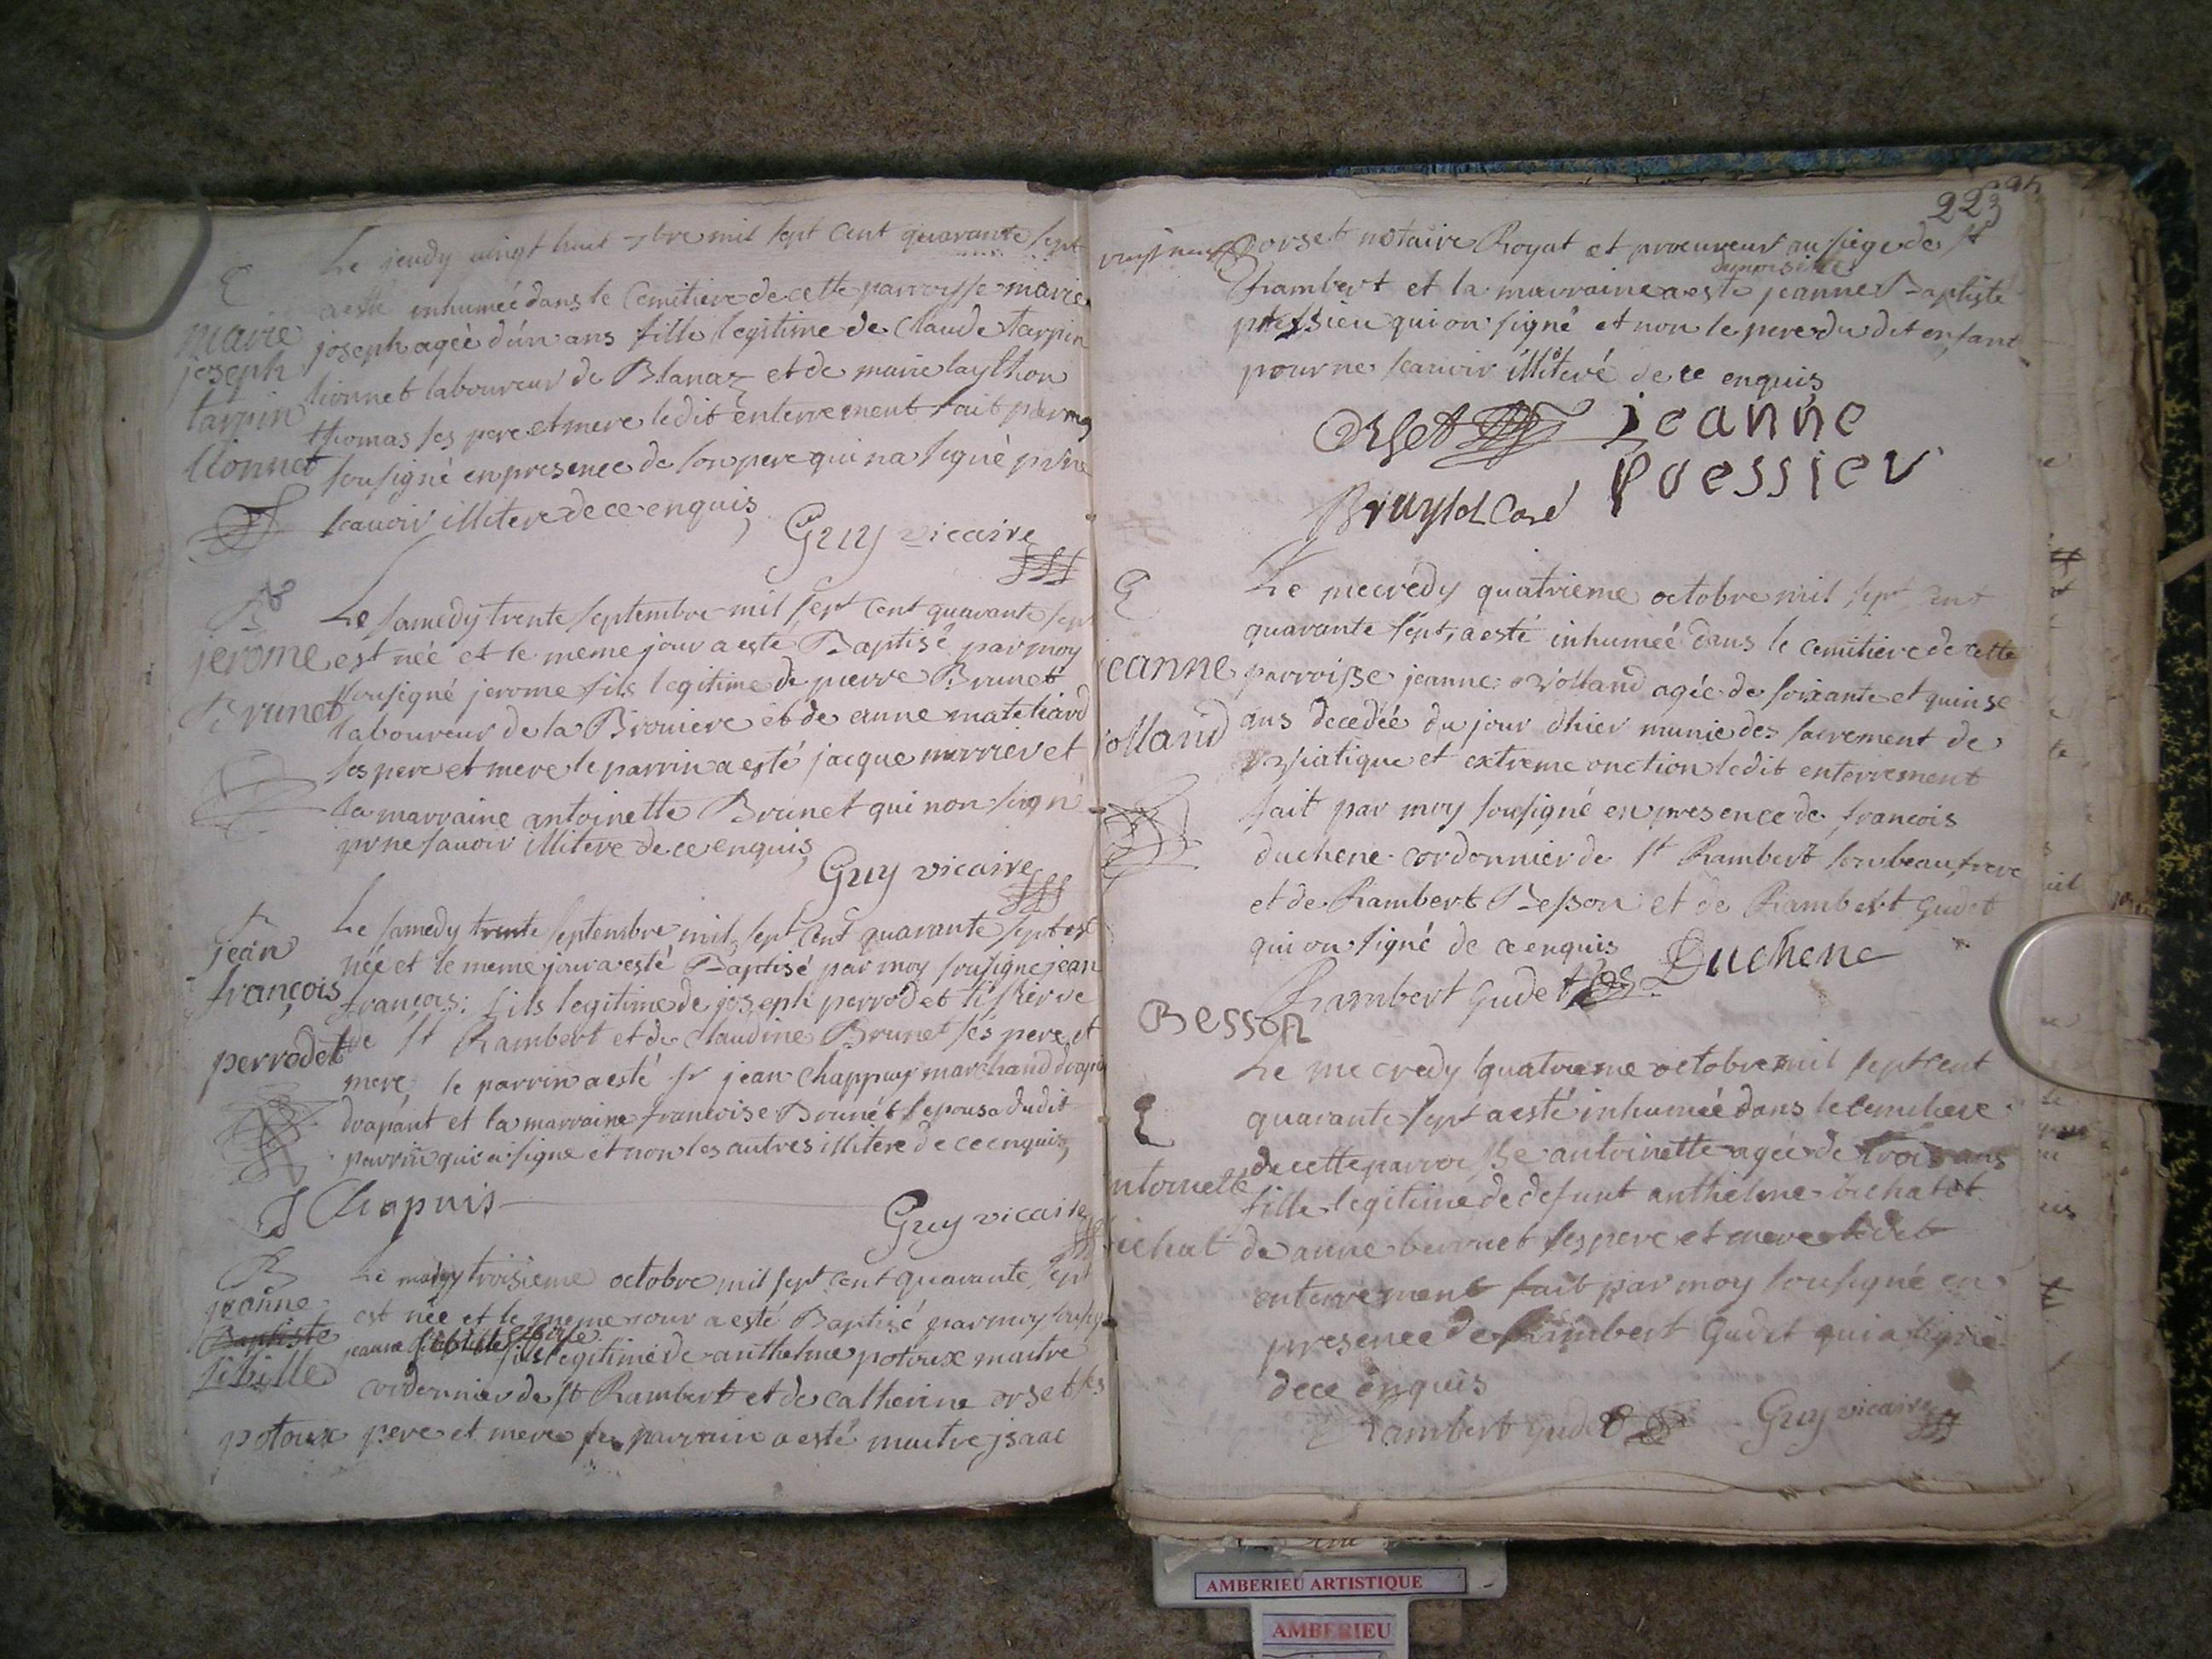 Le jeudy vingt huit 7bre mil sept cent quarante sept
E
a esté inhumeé dans le Cemitiere de cette parroisse marie
marie
joseph ageè d'un ans fille legitime de Claude tarpin
joseph
lionnet laboureur de Blanaz et de marie laython
tarpin
thomas ses pere et mere ledit enterrement fait par moy
lionnet
sousigné en presence de son pere qui na signè pr ne
scauoir illitere de ce enquis
Guy vicaire
B
Le samedy trente septembre mil sept cent quarante sept
jerome
est née et le meme jour a este Baptisé par moy
sousigné jerome fils legitime de pierre Brunet
Brunet
laboureur de la Brouiere et de anne matthard
ses pere et mere le parrin a esté jacque murrier et
la marraine antoinette Brunet qui non signé
pr ne sauoir illitere de ce enquis
Guy vicaire
Le samedy trente septembre mil sept cent quarante sept est
jean
née et le meme jour a esté Baptisé par moy sousigné jean
françois
françois: fils legitime de joseph perrodet
de St Rambert et de Claudine Brunet ses pere et
perrodet
mere, le parrin a esté sr jean Chappuy marchand
drapant et la marraine francoise Brunét l'epouse dudit
parrin qui a signe et non les autres illitere de ce enquis,
J Chapuis
Guy vicaire
B
Le mardy troisieme octobre mil sept cent quarante sept
jeanne
est née et le meme jour a esté Baptisé par moy sousigné
Baptiste
jeanne sibille fille
legitime de anthelme potoux maitre
sibille
cordonnier de St Rambert et de catherine orset ses
potoux
pere et mere le parrain a esté maitre jsaac
223
orset notaire Royal et procureur au siege de St
demoiselle
Rambert et la marraine a esté jeanne Baptiste
puessieu qui on signé et non le pere du dit enfant
pour ne scauoir illiteré de ce enquis
Orset
jeanne
puessieu
Bruyset Curé
E
Le mecredy quatrieme octobre mil sept cent
quarante sept, a esté inhumeé dans le cemitiere de cette
jeanne
parroisse jeanne Volland agée de soixante et quinse
ans decedée du jour d'hier munie des sacrement de
Volland
Viatique et extreme onction ledit enterrement
fait par moy sousigné en presence de francois
duchene cordonnier de St Rambert son beau frere
et de Rambert Besson et de Rambert Gudet
qui on signé de ce enquis
Duchene
Rambert Gudet
Besson
Le mecredy quatrieme octobre mil sept cent
E
quarante sept a esté inhumeé dans le cemitiere
de cette parroisse antoinette agée de trois ans
antoinette
fille legitime de defunt anthelme bichat et
bichat
de anne burnet ses pere et mere ledit
enterrement fait par moy sousigné en
presence de Rambert Gudet qui a signé
de ce enquis
Rambert Gudet
Guy vicaire
AMBERIEU ARTISTIQUE
AMBERIEU